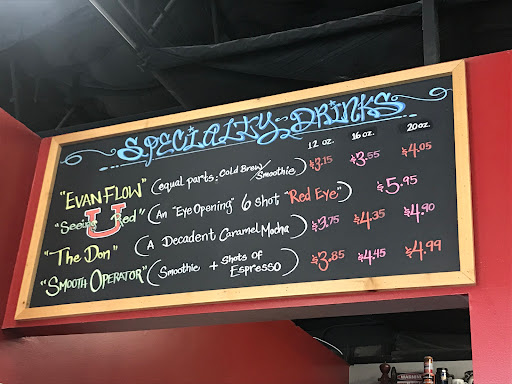 Specialty Drinks
12 oz. 16 oz. 20 oz.
"Evan Flow" (equal parts: Cold Brew/Smoothie) $3.15 $3.55 $4.05
"Seeing Red" (An "Eye Opening" 6 shot "Red Eye") $5.95
"The Don" (A Decadent Caramel Mocha) $3.75 $4.35 $4.90
"Smooth Operator" (Smoothie + Shots of Espresso) $3.85 $4.45 $4.99